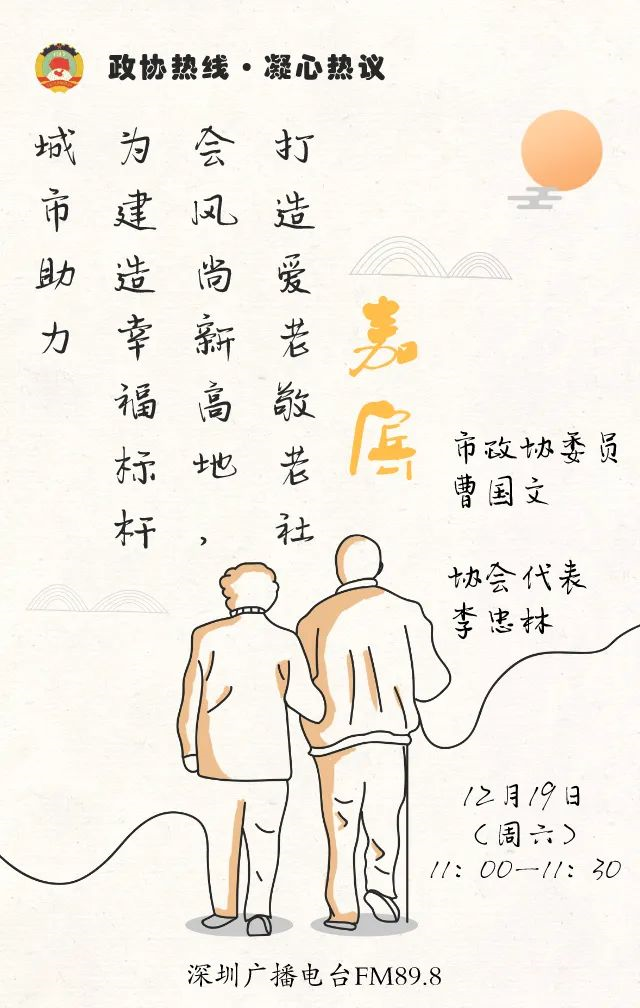 政协热线·凝心热议
打造爱老敬老社
会风尚新高地，
为建造幸福标杆
城市助力
嘉宾
市政协委员
曹国文
协会代表
李忠林
12月19日
（周六）
11：00—11：30
深圳广播电台FM89.8